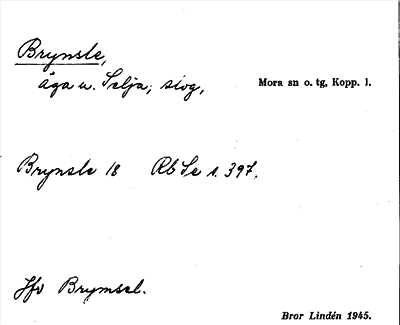 Brynsle,
äga u. Selja; skog,
Mora sn o. tg, Kopp. l.
Brynsle 18 Rb Se s. 397.
Jfr Brymsel.
Bror Lindén 1945.